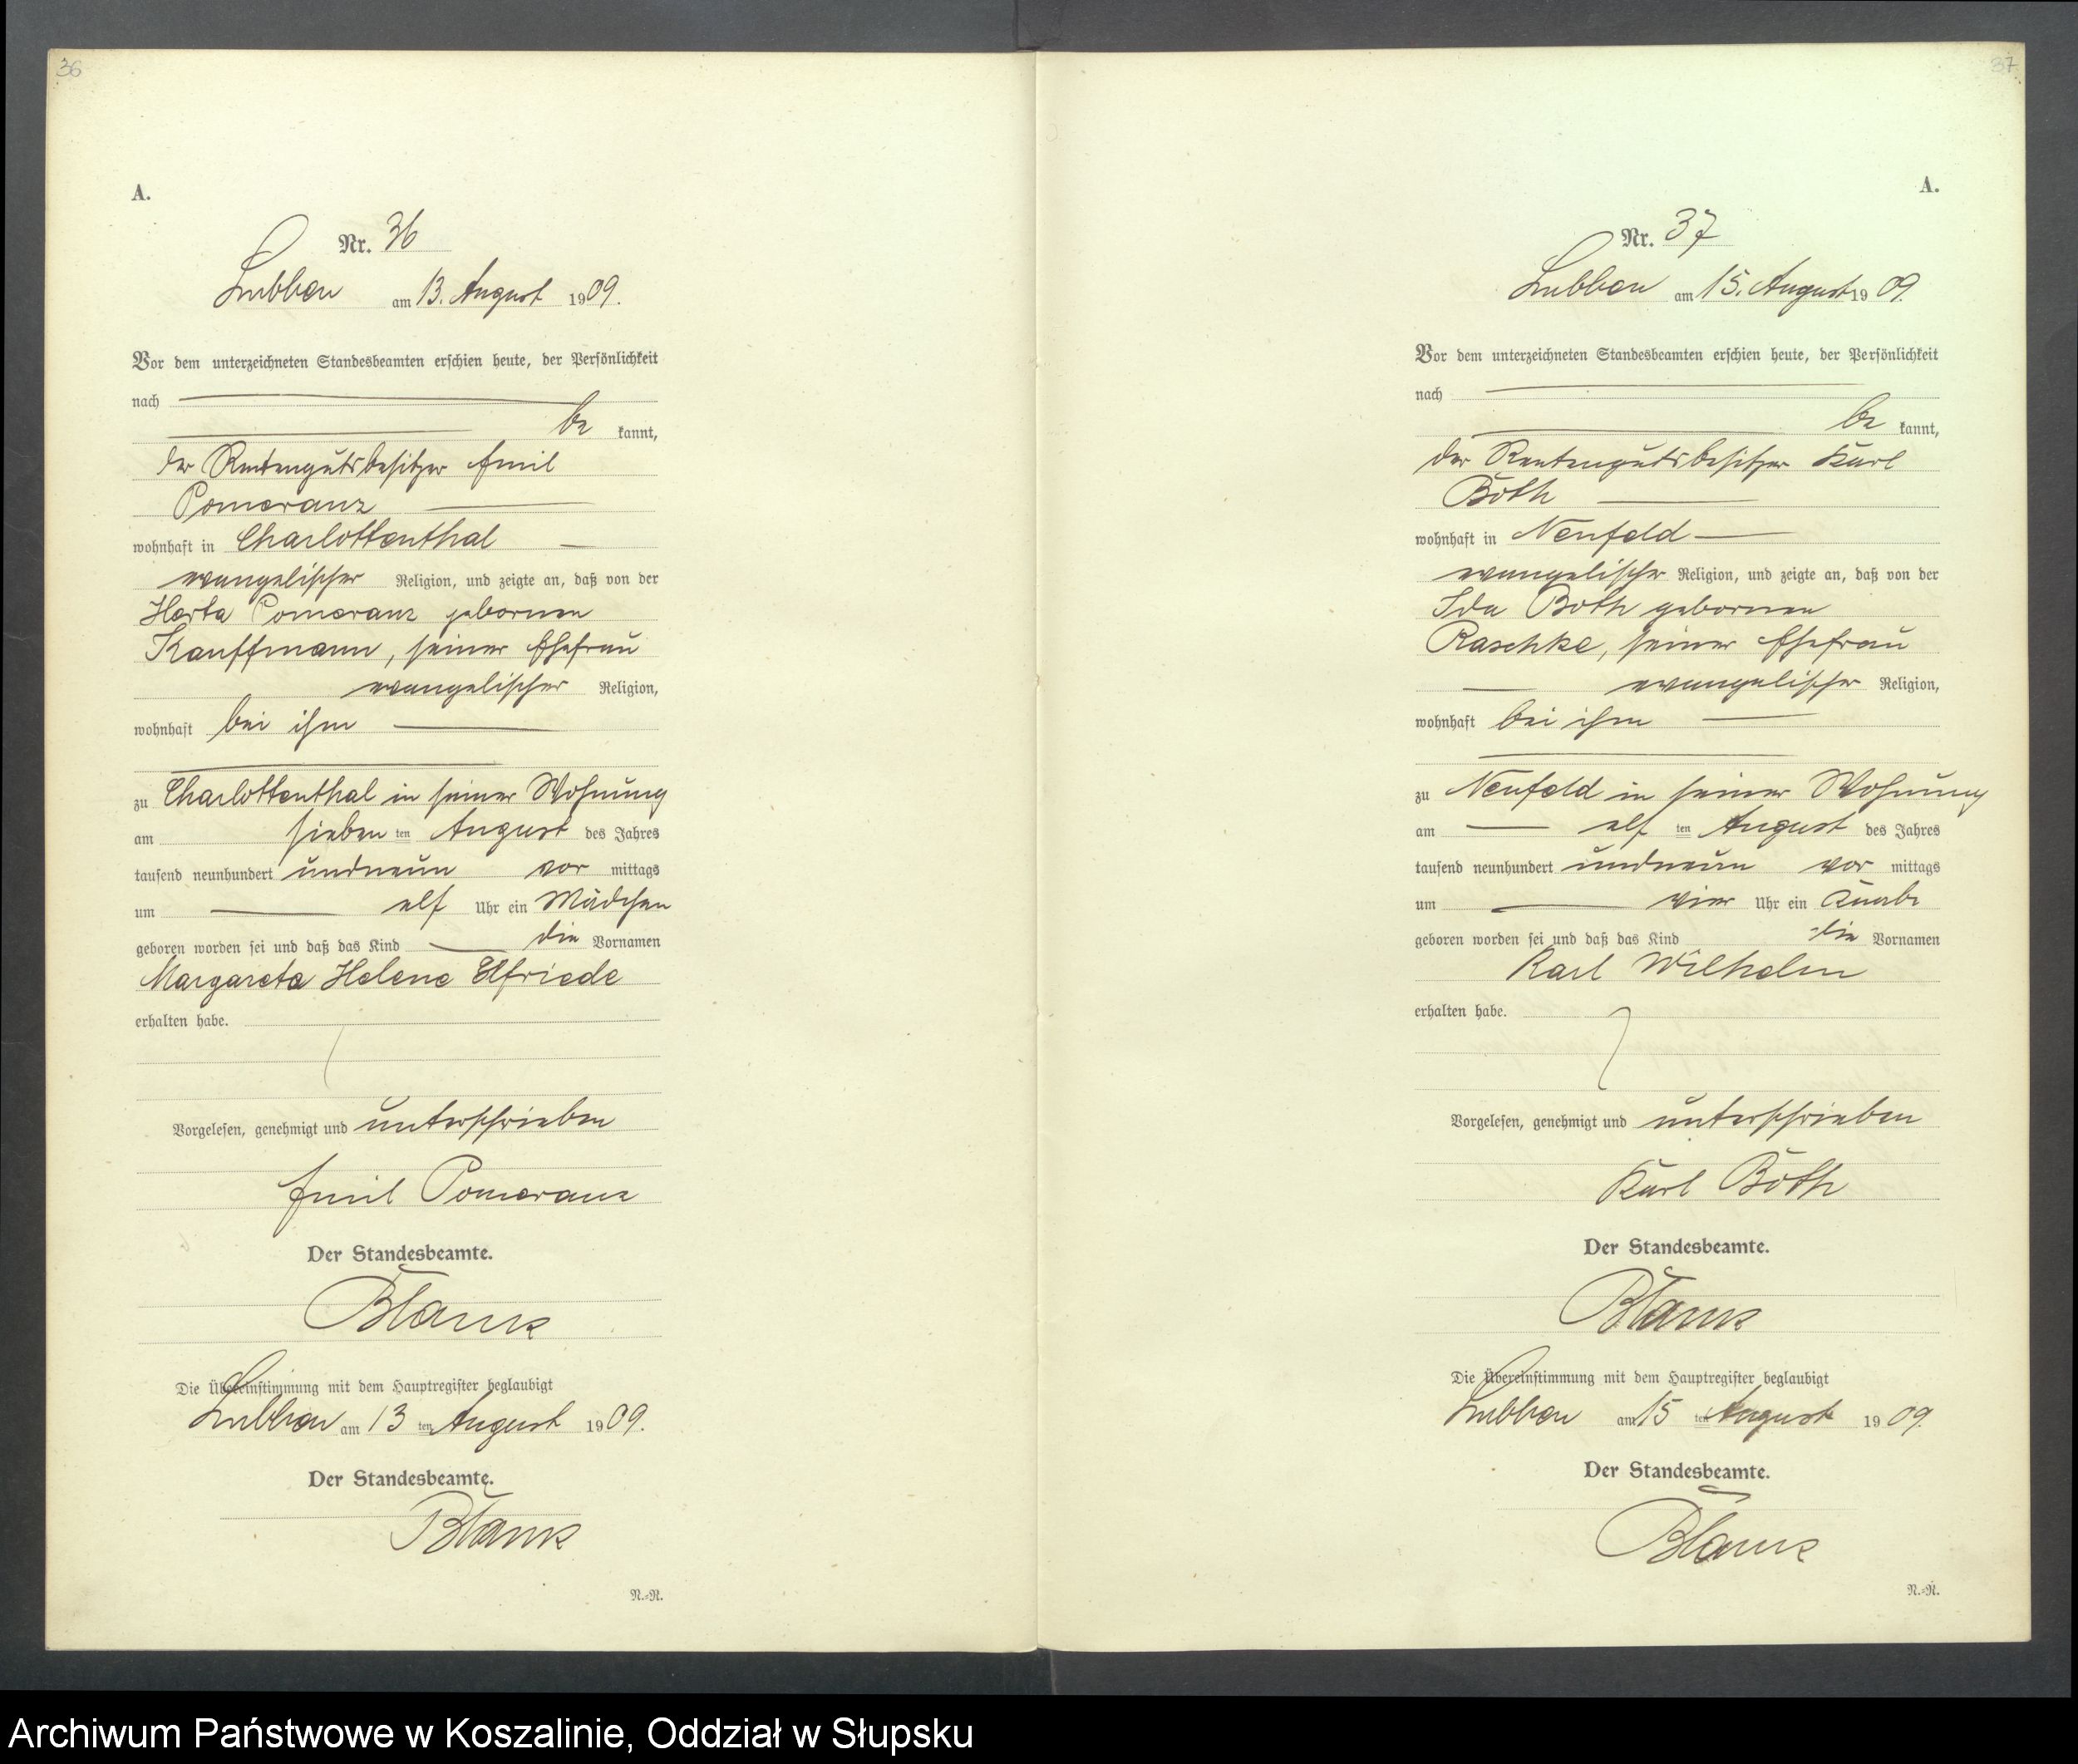 36
A.
Nr. 36
Lubben am 13. August 1909.
Vor dem unterzeichneten Standesbeamten erschien heute, der Persönlichkeit
nach
be kannt,
der Rentengutsbesitzer Emil
Pomeranz
wohnhaft in Charlottenthal
evangelischer Religion, und zeigte an, daß von der
Herta Pomeranz gebornen
Kauffmann, seiner Ehefrau
evangelischer Religion,
wohnhaft bei ihm
zu Charlottenthal in seiner Wohnung
am sieben ten August des Jahres
tausend neunhundert undneun vor mittags
um elf Uhr ein Mädchen
geboren worden sei und daß das Kind die Vornamen
Margareta Helene Elfriede
erhalten habe.
Vorgelesen, genehmigt und unterschrieben
Emil Pomeranz
Der Standesbeamte.
Die Übereinstimmung mit dem Hauptregister beglaubigt
Lubben am 13 ten August 1909.
Der Standesbeamte.
N.-R.
37
A.
Nr. 37
Lubben am 15. August 1909.
Vor dem unterzeichneten Standesbeamten erschien heute, der Persönlichkeit
nach
be kannt,
der Rentengutsbesitzer Karl
Both
wohnhaft in Neufeld
evangelischer Religion, und zeigte an, daß von der
Ida Both gebornen
Raschke, seiner Ehefrau
evangelischer Religion,
wohnhaft bei ihm
zu Neufeld in seiner Wohnung
am elf ten August des Jahres
tausend neunhundert undneun vor mittags
um vier Uhr ein Knabe
geboren worden sei und daß das Kind die Vornamen
Karl Wilhelm
erhalten habe.
Vorgelesen, genehmigt und unterschrieben
Karl Both
Der Standesbeamte.
Die Übereinstimmung mit dem Hauptregister beglaubigt
Lubben am 15 ten August 1909.
Der Standesbeamte.
N.-R.
Archiwum Państwowe w Koszalinie, Oddział w Słupsku